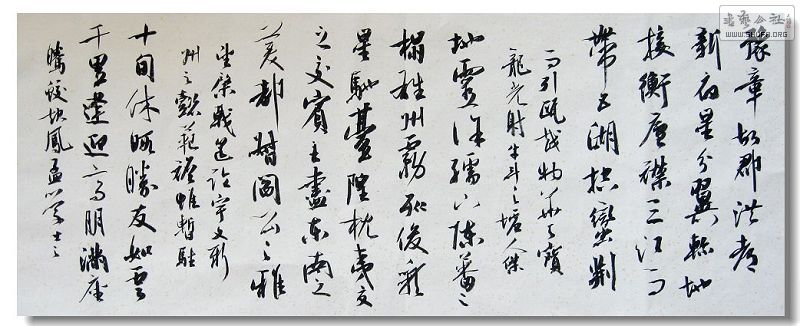 豫章故郡洪都
新府星分翼軫地
接衡廬襟三江而
帶五湖控蠻荆
而引甌越物華天寶
龍光射牛斗之墟人傑
地靈徐孺下陳蕃之
榻雄州霧列俊彩
星馳臺隍枕夷夏
之交賓主盡東南之
美都督閻公之雅
望棨戟遥臨宇文新
州之懿範襜帷暫駐
十旬休暇勝友如雲
千里逢迎高朋滿座
騰蛟起鳳孟學士之
WWW.SHUFA.ORG